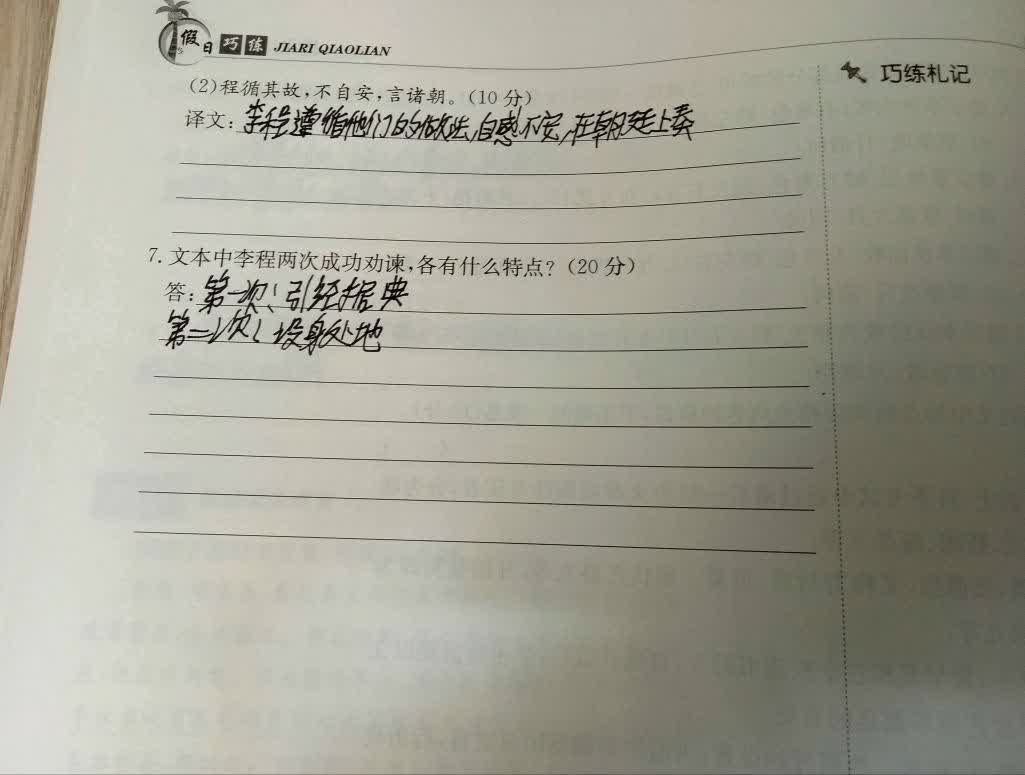 假日巧练 JIARI QIAOLIAN
巧练札记
(2)程循其故,不自安,言诸朝。(10分)
译文:李程遵循他们的做法,自感不安,在朝廷上奏
7.文本中李程两次成功劝谏,各有什么特点?(20分)
答:第一次:引经据典
第二次:设身处地